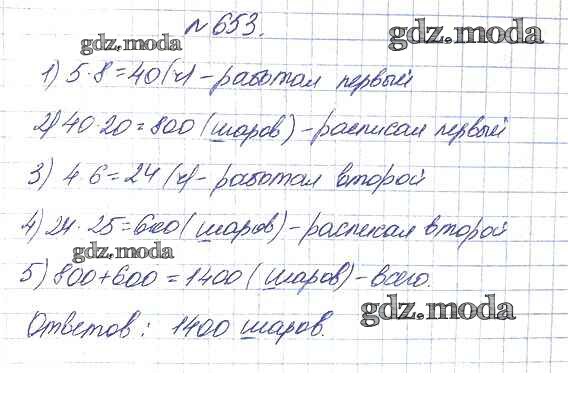 №653.
gdz.moda
gdz.moda
1) 5·8=40(ч) - работал первый
2) 40·20=800 (шаров) - расписал первый
3) 4·6=24 (ч) - работал второй
4) 24·25=600 (шаров) - расписал второй
gdz.moda
5) 800+600=1400 (шаров) - всего.
gdz.moda
Ответов: 1400 шаров.